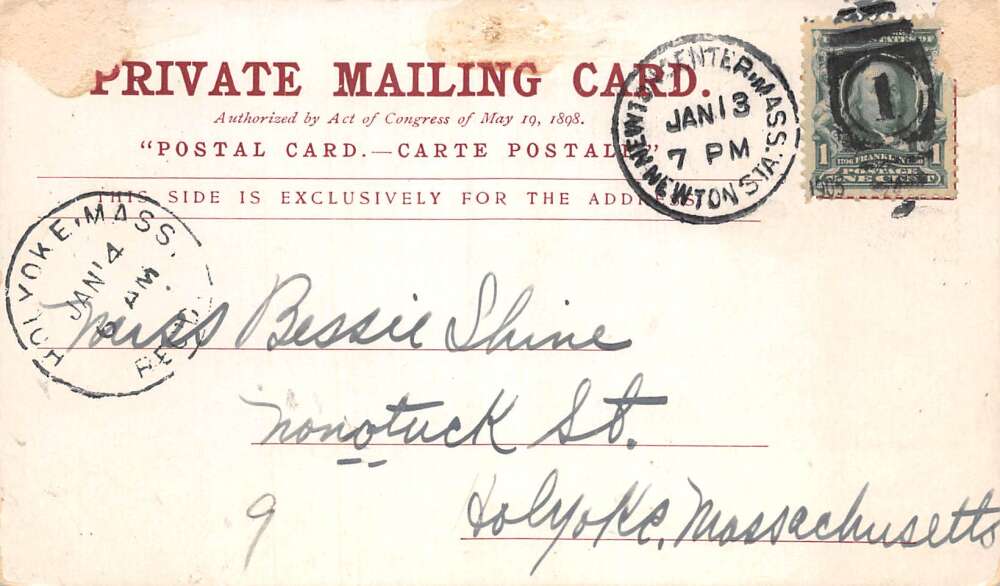 PRIVATE MAILING CARD.
Authorized by Act of Congress of May 19, 1898.
"POSTAL CARD.—CARTE POSTALE"
THIS SIDE IS EXCLUSIVELY FOR THE ADDRESS
NEWTON CENTER, MASS.
JAN 13
7 PM
NEWTON STA.
1
1903
1 FRANKLIN 1
POSTAGE
ONE CENT
HOLYOKE, MASS.
JAN 14
AM
REC'D
Miss Bessie Shine
Nonotuck St.
9
Holyoke, Massachusetts